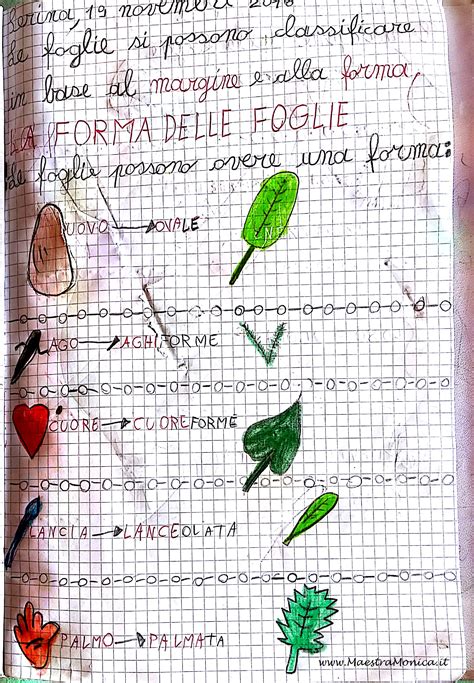 19 novembre
Le foglie si possono classificare
in base al margine e alla forma
LA FORMA DELLE FOGLIE
Le foglie possono avere una forma:
UOVO → OVALE
AGO → AGHIFORME
CUORE → CUOREFORME
LANCIA → LANCEOLATA
PALMO → PALMATA
www.MaestraMonica.it